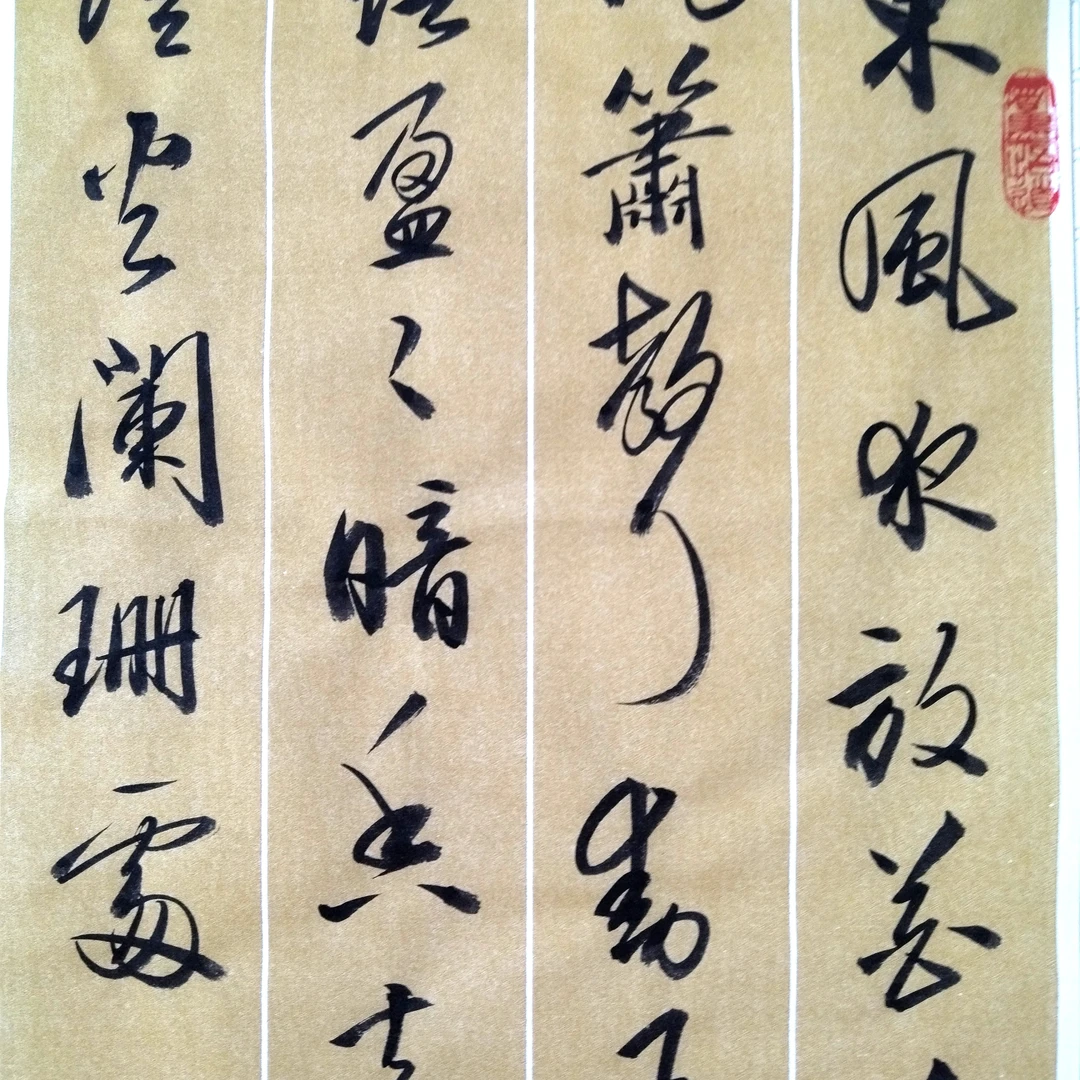 東風夜放花
簫聲動
語盈々暗香去
火闌珊處